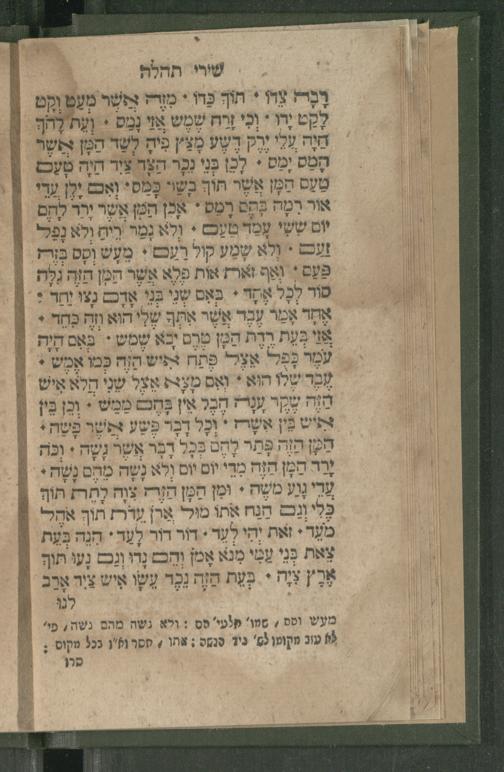 שירי תהלה
רָבָה צֵדוֹ · תּוֹךְ כַּדּוֹ · מִזֶּה אֲשֶׁר מְעַט וְקָט
לָקַט יָדוֹ · וְכִי זָרַח שֶׁמֶשׁ אֲזַי נָמַס · וְעֵת לָהֹךְ
הָיָה עֲלֵי יֶרֶק דֶּשֶׁע מָצַץ פִּיהָ לְשַׁד הַמָּן אֲשֶׁר
הָמֵס יָמַס · לָכֵן בְּנֵי נֵכָר הַצָּד צַיִד הָיָה טַעַם
טַעַם הַמָּן אֲשֶׁר תּוֹךְ בְּשַׂר כָּמַס · וְאִם יָלֶן עֲדֵי
אוֹר רִמָּה בָּהֶם רָמַס · אָכֵן הַמָּן אֲשֶׁר יָרַד לָהֶם
יוֹם שִׁשִּׁי עָמַד טַעַם · וְלֹא נָמַר רֵיחַ וְלֹא נָפַל
זַעַם · וְלֹא שָׁמַע קוֹל רַעַם · מֵעָשׁ וְסָס בְּזֶה
פַּעַם · וְאַף זֹאת אוֹת פֶּלֶא אֲשֶׁר הַמָּן הַזֶּה גִּלָּה
סוֹד לְכָל אֶחָד · בְּאִם שְׁנֵי בְּנֵי אָדָם נָצוּ יַחַד :
אֶחָד אָמַר עֶבֶד אֲשֶׁר אִתְּךָ שֶׁלִּי הוּא וְזֶה כִּחֵד ·
אֲזַי בְּעֵת רֶדֶת הַמָּן טֶרֶם יָבֹא שֶׁמֶשׁ · בְּאִם הָיָה
עֹמֶר כָּפֻל אֵצֶל פֶּתַח אִישׁ הַזֶּה כְּמוֹ אֶמֶשׁ ·
עֶבֶד שֶׁלּוֹ הוּא · וְאִם מָצָא אֵצֶל שֵׁנִי הֲלֹא אִישׁ
הַזֶּה שֶׁקֶר עָנָה הֶבֶל אֵין בָּהֶם מַמָּשׁ · וְכֵן בֵּין
אִישׁ בֵּין אִשָּׁה · וְכָל דְּבַר פֶּשַׁע אֲשֶׁר פָּשָׂה ·
הַמָּן הַזֶּה פָּתַר לָהֶם בְּכָל דָּבָר אֲשֶׁר נָשָׁה · וְכֹה
יָרַד הַמָּן הַזֶּה מִדֵּי יוֹם יוֹם וְלֹא נָשָׁה מֵהֶם נָשָׁה ·
עֲדֵי גָוַע מֹשֶׁה · וּמִן הַמָּן הַזֶּה צִוָּה לָתֵת תּוֹךְ
כְּלִי וְגַם הַנַּח אֹתוֹ מוּל אֲרֹן עֵדֻת תּוֹךְ אֹהֶל
מֹעֵד · זֹאת יְהִי לְעֵד · דּוֹר דּוֹר לָעַד · הִנֵּה בְּעֵת
צֵאת בְּנֵי עַמִּי מִנֹּא אָמֹן וְהֵם נָדוּ וְגַם נָעוּ תּוֹךְ
אֶרֶץ צִיָּה · בְּעֵת הַזֶּה נֶכֶד עֵשָׂו אִישׁ צַיִד אָרַב
לָנוּ
מעש וסס , שמו׳ תלעי׳ הס : ולא נשה מהם נשה , פי׳
לא עזב מקומן לש׳ גיד הנשה : אתו , חסר וא״ו בכל מקום :
סרו